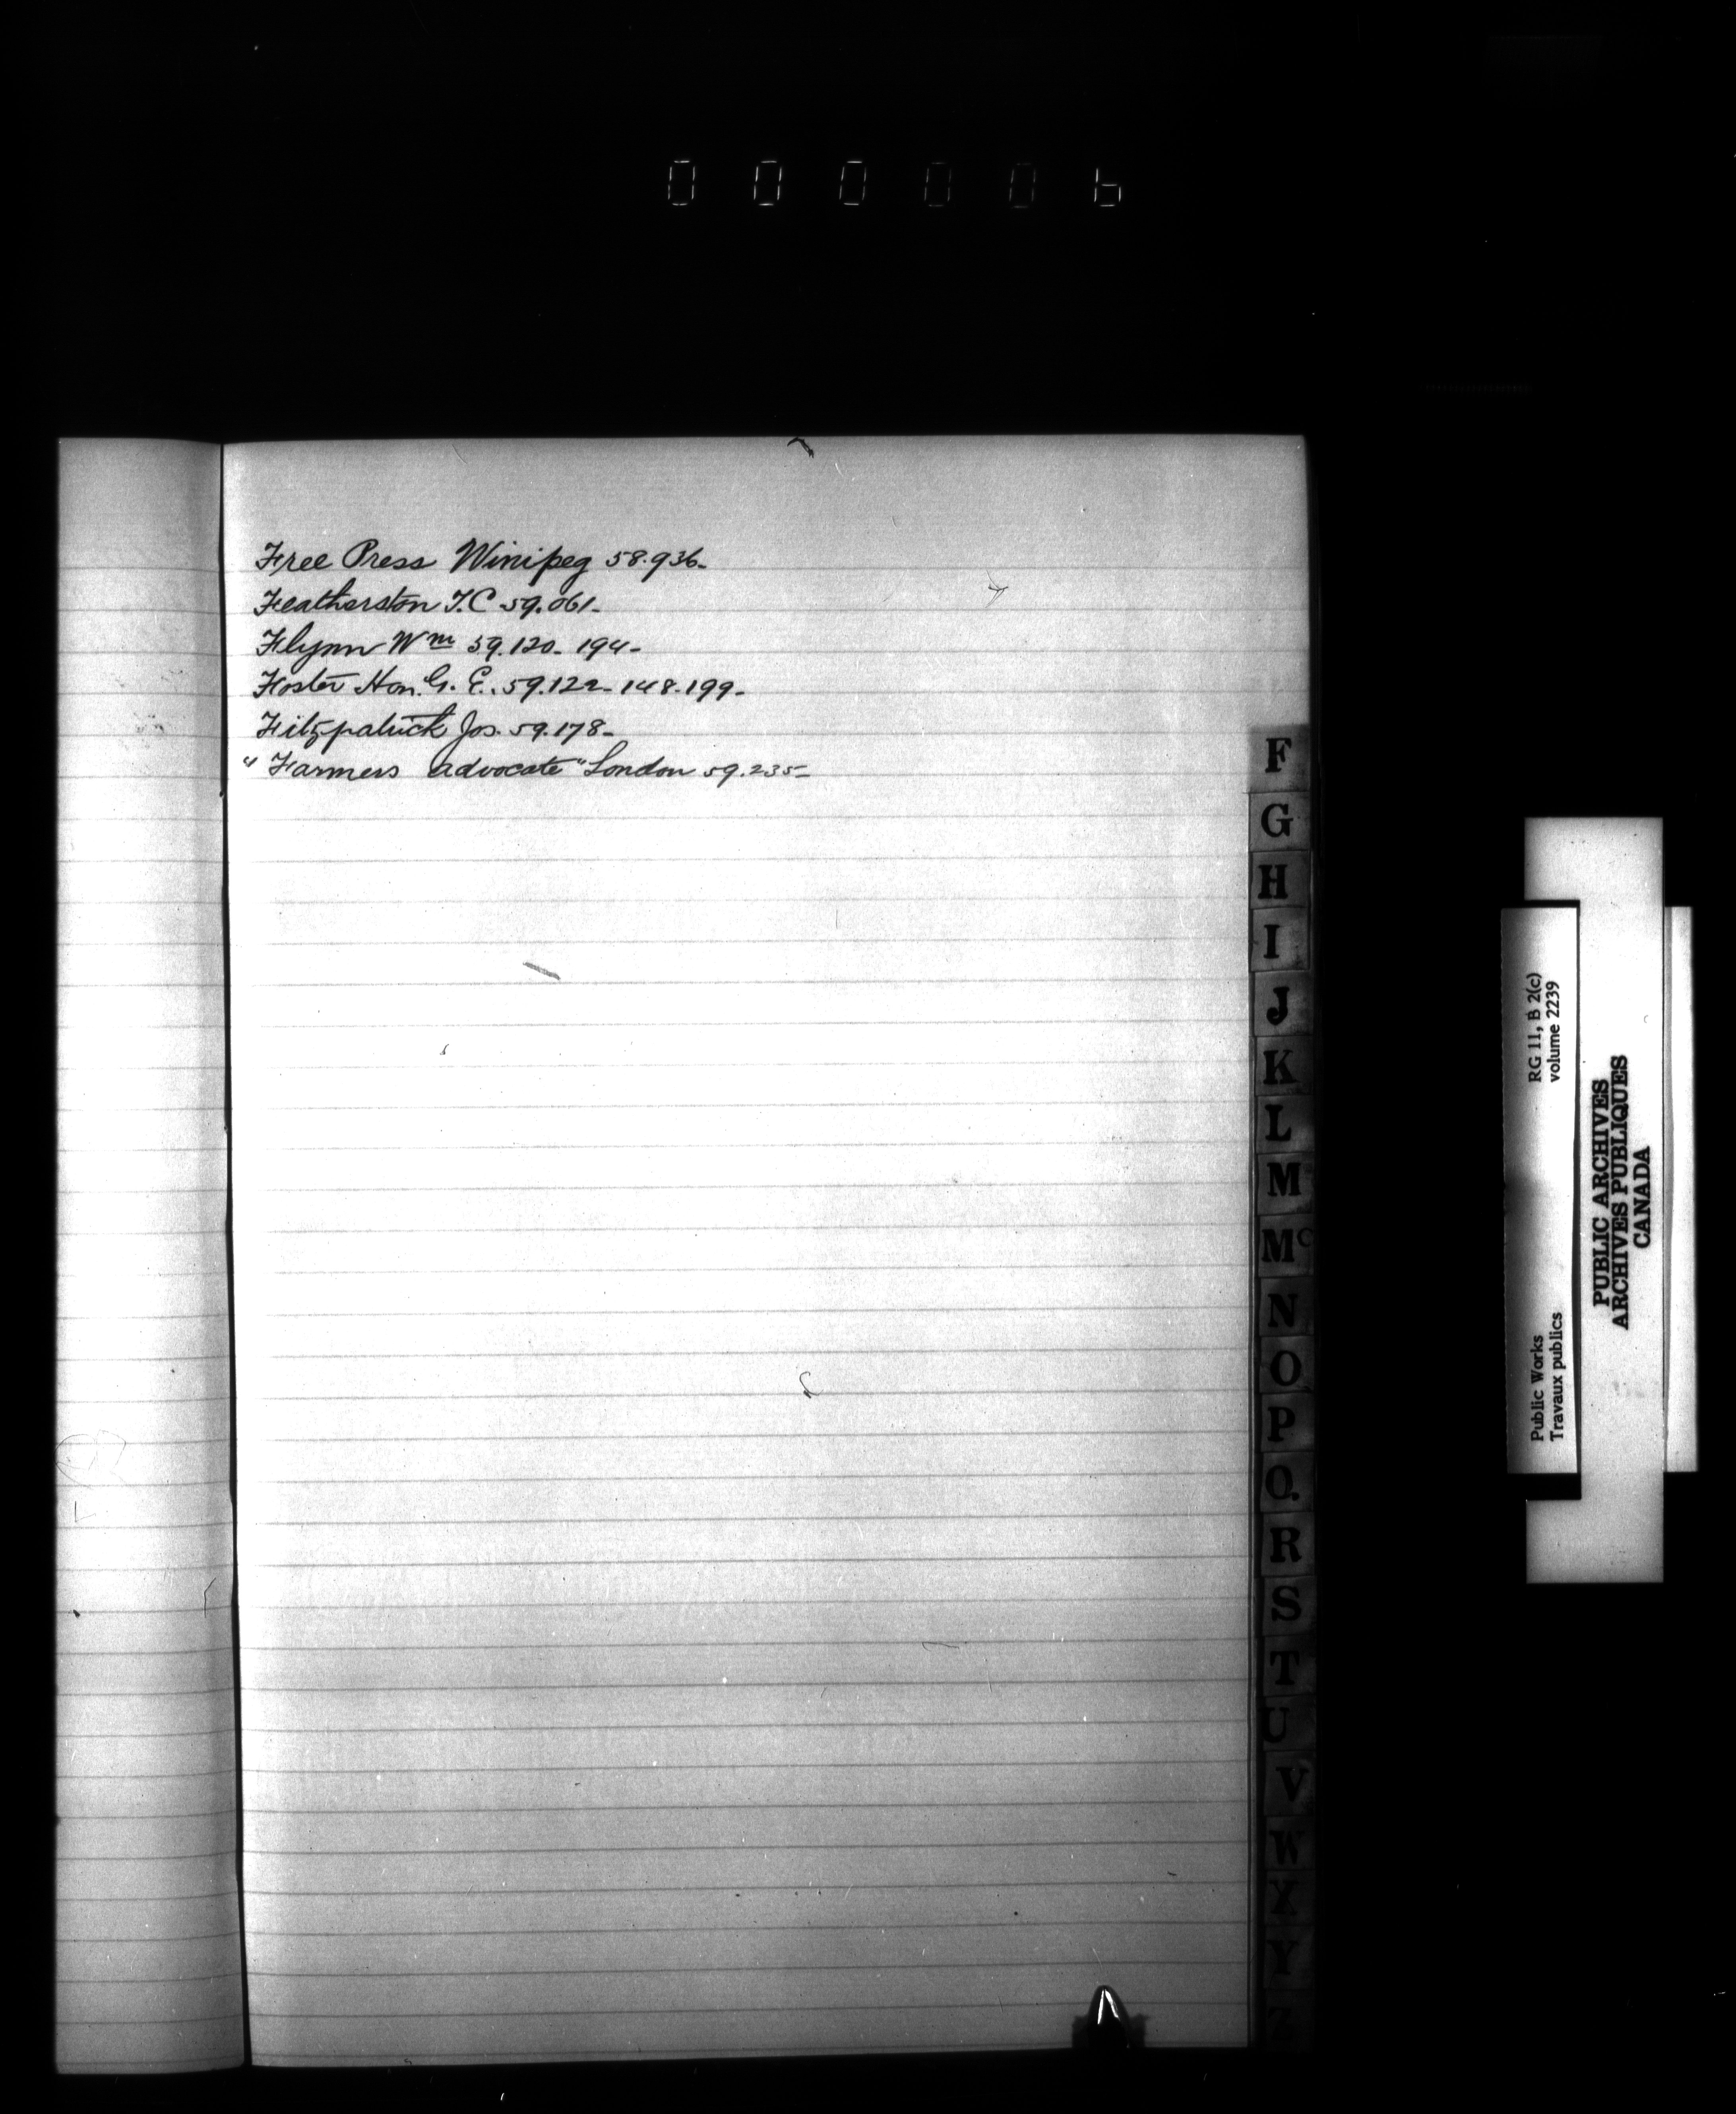 000006
Free Press Winipeg 58.936-
Featherston T.C 59.061-
Flynn Wm 59.120- 194-
Foster Hon. G. E. 59.122- 148-199-
Fitzpatrick Jos. 59.178-
"Farmers advocate" London 59.235-
F
G
H
I
J
K
L
M
Mc
N
O
P
Q.
R
S
T
U
V
W
X
Y
Z
RG 11, B 2(c)
volume 2239
Public Works
Travaux publics
PUBLIC ARCHIVES
ARCHIVES PUBLIQUES
CANADA